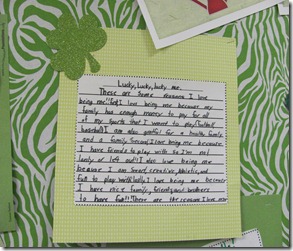 Lucky, Lucky, lucky me.
These are some reasons I love
being me!! First I love being me because my
family has enough money to pay for all
of my sports that I want to play (football
baseball) I am also grateful for a healthy family
and a family. Second, I love being me because
I have friends to play with so I'm not
lonely or left out!! I also love being me
because I am smart, creative, athletic, and
fun to play with. Lastly, I love being me because
I have nice family, friends, and brothers
to have fun!! These are the reasons I love